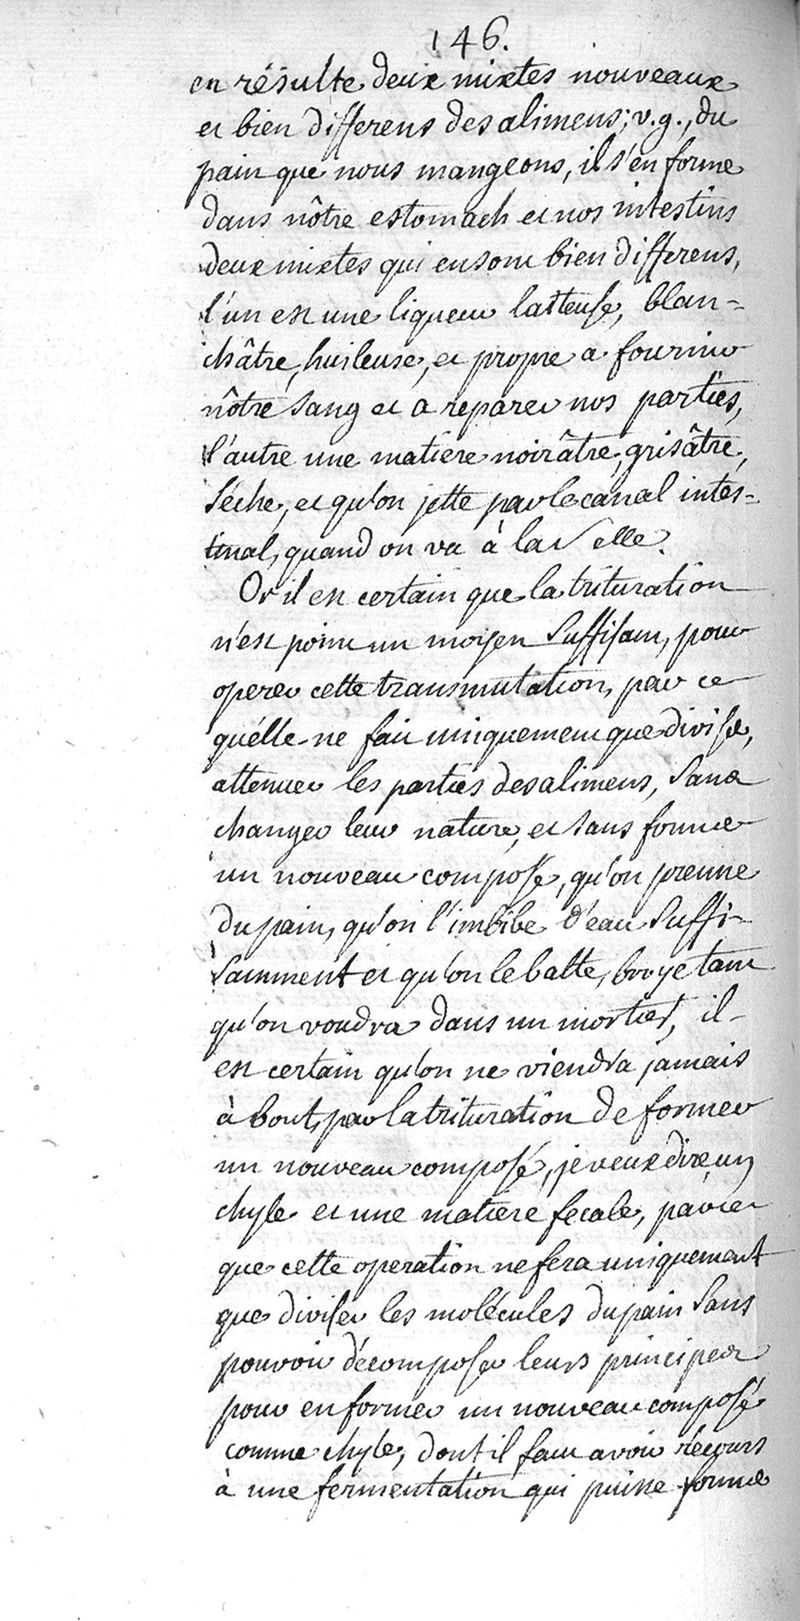 146.
en résulte deux mixtes nouveaux
et bien differens des alimens; v. g., du
pain que nous mangeons, il s'en forme
dans nôtre estomach et nos intestins
deux mixtes qui en sont bien differens,
l'un est une liqueur laiteuse, blan-
châtre, huileuse, et propre a fournir
nôtre sang et a reparer nos parties,
l'autre une matiere noirâtre, grisâtre,
séche, et qu'on jette par le canal intes-
tinal, quand on va à la selle.
Or il est certain que la trituration
n'est point un moyen suffisant, pour
operer cette transmutation, par ce
qu'élle ne fait uniquement que divise,
attenuer les parties des alimens, sans
changer leur nature, et sans former
un nouveau composé, qu'on prenne
du pain, qu'on l'imbibe d'eau suffi-
samment et qu'on le batte, broye tant
qu'on voudra dans un mortier, il
est certain qu'on ne viendra jamais
à bout, par la trituration de former
un nouveau composé, je veux dire, un
chyle et une matiere fecale, parce
que cette operation ne fera uniquement
que diviser les molécules du pain sans
pouvoir décomposer leurs principes
pour en former un nouveau composé
comme chyle, dont il faut avoir récours
à une fermentation qui puisse former